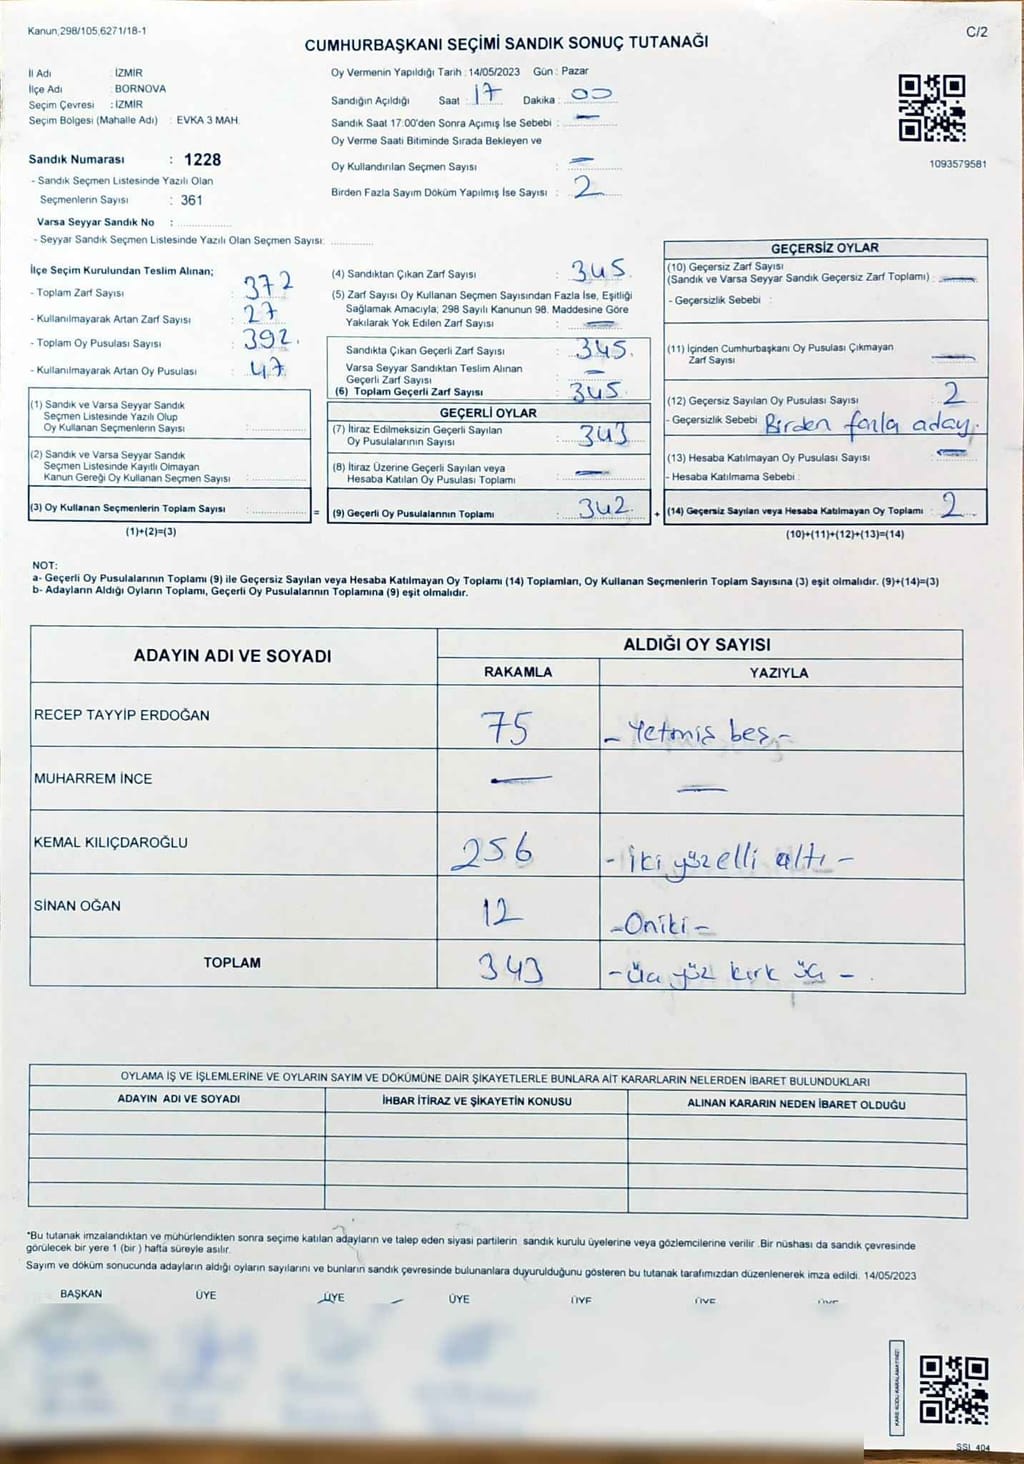 Kanun,298/105,6271/18-1
C/2
CUMHURBAŞKANI SEÇİMİ SANDIK SONUÇ TUTANAĞI
İl Adı : İZMİR
İlçe Adı : BORNOVA
Seçim Çevresi : İZMİR
Seçim Bölgesi (Mahalle Adı) : EVKA 3 MAH.
Sandık Numarası : 1228
- Sandık Seçmen Listesinde Yazılı Olan
Seçmenlerin Sayısı : 361
Varsa Seyyar Sandık No :
- Seyyar Sandık Seçmen Listesinde Yazılı Olan Seçmen Sayısı:
Oy Vermenin Yapıldığı Tarih : 14/05/2023 Gün : Pazar
Sandığın Açıldığı Saat : 17 Dakika : 00
Sandık Saat 17:00'den Sonra Açımış İse Sebebi : —
Oy Verme Saati Bitiminde Sırada Bekleyen ve
Oy Kullandırılan Seçmen Sayısı : —
Birden Fazla Sayım Döküm Yapılmış İse Sayısı : 2
1093579581
İlçe Seçim Kurulundan Teslim Alınan;
- Toplam Zarf Sayısı : 372
- Kullanılmayarak Artan Zarf Sayısı : 27
- Toplam Oy Pusulası Sayısı : 392.
- Kullanılmayarak Artan Oy Pusulası : 47
(1) Sandık ve Varsa Seyyar Sandık
Seçmen Listesinde Yazılı Olup
Oy Kullanan Seçmenlerin Sayısı :
(2) Sandık ve Varsa Seyyar Sandık
Seçmen Listesinde Kayıtlı Olmayan
Kanun Gereği Oy Kullanan Seçmen Sayısı :
(3) Oy Kullanan Seçmenlerin Toplam Sayısı : =
(1)+(2)=(3)
(4) Sandıktan Çıkan Zarf Sayısı : 345.
(5) Zarf Sayısı Oy Kullanan Seçmen Sayısından Fazla İse, Eşitliği
Sağlamak Amacıyla; 298 Sayılı Kanunun 98. Maddesine Göre
Yakılarak Yok Edilen Zarf Sayısı : —
Sandıkta Çıkan Geçerli Zarf Sayısı : 345.
Varsa Seyyar Sandıktan Teslim Alınan
Geçerli Zarf Sayısı : —
(6) Toplam Geçerli Zarf Sayısı : 345.
GEÇERLİ OYLAR
(7) İtiraz Edilmeksizin Geçerli Sayılan
Oy Pusulalarının Sayısı : 343
(8) İtiraz Üzerine Geçerli Sayılan veya
Hesaba Katılan Oy Pusulası Toplamı : —
(9) Geçerli Oy Pusulalarının Toplamı : 342. +
GEÇERSİZ OYLAR
(10) Geçersiz Zarf Sayısı
(Sandık ve Varsa Seyyar Sandık Geçersiz Zarf Toplamı) : —
- Geçersizlik Sebebi :
(11) İçinden Cumhurbaşkanı Oy Pusulası Çıkmayan
Zarf Sayısı : —
(12) Geçersiz Sayılan Oy Pusulası Sayısı : 2
- Geçersizlik Sebebi : Birden fazla aday.
(13) Hesaba Katılmayan Oy Pusulası Sayısı : —
- Hesaba Katılmama Sebebi :
(14) Geçersiz Sayılan veya Hesaba Katılmayan Oy Toplamı : 2
(10)+(11)+(12)+(13)=(14)
NOT:
a- Geçerli Oy Pusulalarının Toplamı (9) ile Geçersiz Sayılan veya Hesaba Katılmayan Oy Toplamı (14) Toplamları, Oy Kullanan Seçmenlerin Toplam Sayısına (3) eşit olmalıdır. (9)+(14)=(3)
b- Adayların Aldığı Oyların Toplamı, Geçerli Oy Pusulalarının Toplamına (9) eşit olmalıdır.
ADAYIN ADI VE SOYADI
ALDIĞI OY SAYISI
RAKAMLA YAZIYLA
RECEP TAYYİP ERDOĞAN 75 - Yetmiş beş -
MUHARREM İNCE — —
KEMAL KILIÇDAROĞLU 256 - İki yüzelli altı -
SİNAN OĞAN 12 - Oniki -
TOPLAM 343 - üç yüz kırk üç - .
OYLAMA İŞ VE İŞLEMLERİNE VE OYLARIN SAYIM VE DÖKÜMÜNE DAİR ŞİKAYETLERLE BUNLARA AİT KARARLARIN NELERDEN İBARET BULUNDUKLARI
ADAYIN ADI VE SOYADI İHBAR İTİRAZ VE ŞİKAYETİN KONUSU ALINAN KARARIN NEDEN İBARET OLDUĞU
*Bu tutanak imzalandıktan ve mühürlendikten sonra seçime katılan adayların ve talep eden siyasi partilerin sandık kurulu üyelerine veya gözlemcilerine verilir .Bir nüshası da sandık çevresinde
görülecek bir yere 1 (bir ) hafta süreyle asılır.
Sayım ve döküm sonucunda adayların aldığı oyların sayılarını ve bunların sandık çevresinde bulunanlara duyurulduğunu gösteren bu tutanak tarafımızdan düzenlenerek imza edildi. 14/05/2023
BAŞKAN ÜYE ÜYE ÜYE ÜYE ÜYE ÜYE
KARE KODU KARALAMAYINIZ!
SSİ_404